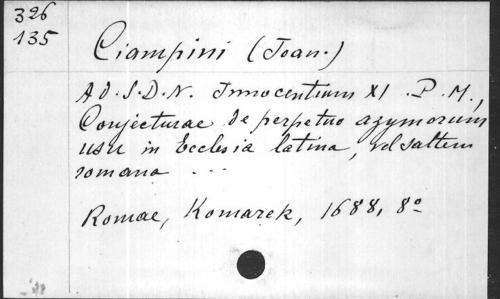 326
135
Ciampini (Joan.)
Ad. S. D. N. Innocentium XI. P. M.,
Conjecturae de perpetuo azymorum
usu in Ecclesia latina, vel saltem
romana ...
Romae, Komarek, 1688, 8º